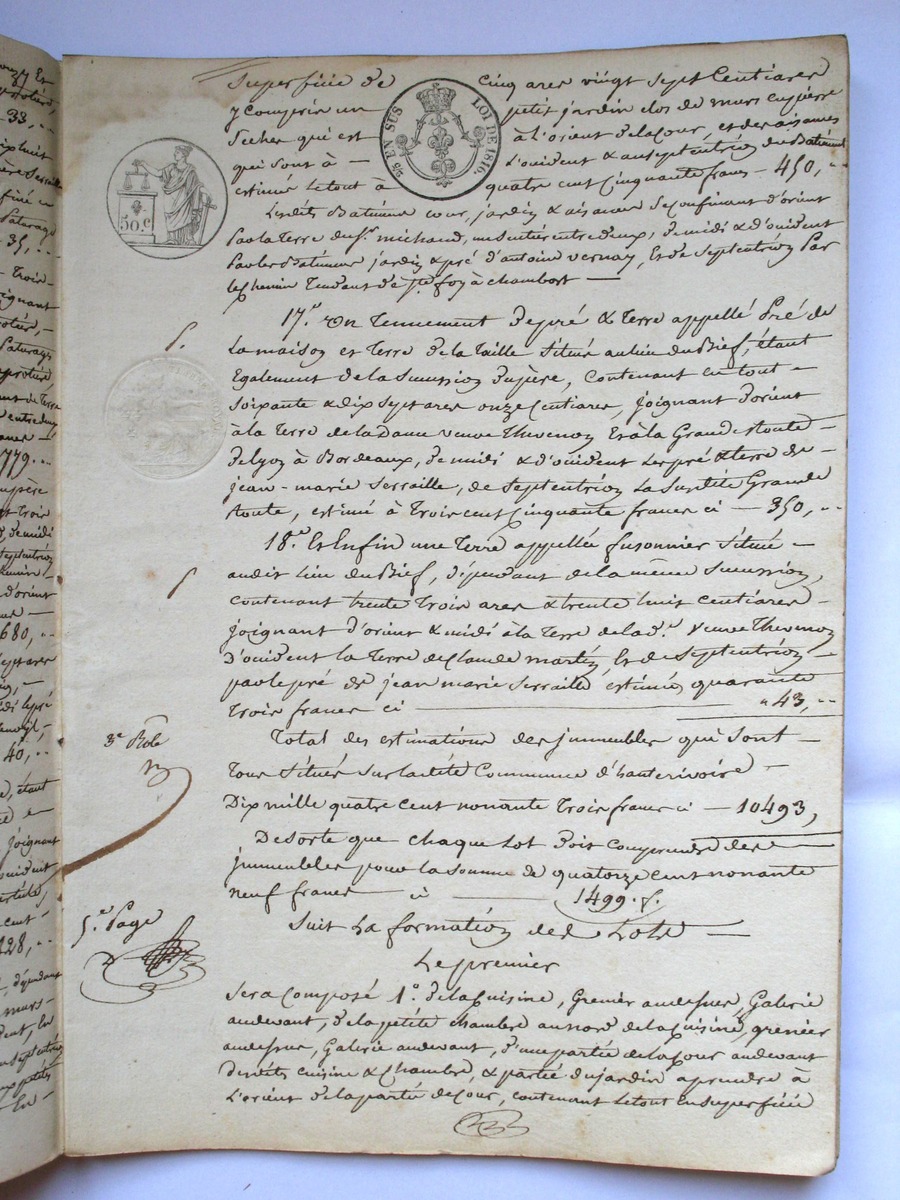 superficie de cinq ares vingt sept Centiares
y Compris un petit jardin clos de murs en pierre
Seches qui est à L'orient de la Cour, et des aisances
qui sont à L'occident & au septentrion des Batiments
estimés le tout à quatre cent Cinquante francs - 450,
Lesdits Batiments cour, jardin & aisances Se confinant d'orient
Par la Terre du Sr. michaud, un Sentier entre deux, de midi & d'occident
Par les Batiments jardin & pré d'antoine vernay, Et de Septentrion Par
le Chemin Tendant de Ste. foy à chambost —
17.° Un Tennement de pré & Terre appellé Pré de
La maison et Terre de la Taille Situé au lieu du Bief, étant
Egalement de la Succession du père, Contenant en tout -
Soixante & dix Sept ares onze Centiares, joignant d'orient
à la Terre de la Dame veuve Thevenon Et à la Grande Route -
de Lyon à Bordeaux, de midi & d'occident les pré & terre de -
jean-marie Serraille, de Septentrion La Susdite Grande
Route, estimé à Trois cent Cinquante francs ci — 350,
18.° Et Enfin une Terre appellée fusonnier Située -
audit Lieu du Bief, dépendant de la même Succession,
contenant trente Trois ares & trente huit centiares -
joignant d'orient & midi à la Terre de la de. Veuve Thevenon
d'occident la Terre de Claude martin, Et de Septentrion -
par le pré de jean marie Serraille estimée quarante
Trois francs ci — 43,
3e Role
Total des estimations des jmmeubles qui sont -
Tous Situés Sur la dite Commune d'hauterivoire -
Dix mille quatre cent nonante Trois francs ci - 10493,
De Sorte que chaque Lot Doit Comprendre des -
jmmeubles pour la Somme de quatorze cent nonante
neuf francs ci — 1499. f.
5e. Page
Suit La formation des Lots —
Le premier
Sera Composé 1.° de la Cuisine, Grenier au dessus, Galerie
au devant, de la petite chambre au nord de la Cuisine, grenier
au dessus, Galerie au devant, d'une partie de la Cour au devant
desdits cuisine & Chambre, & partie du jardin a prendre à
L'orient de la partie de Cour, contenant Le tout En superficie
50.c
ES EN SUS LOI DE 1816.